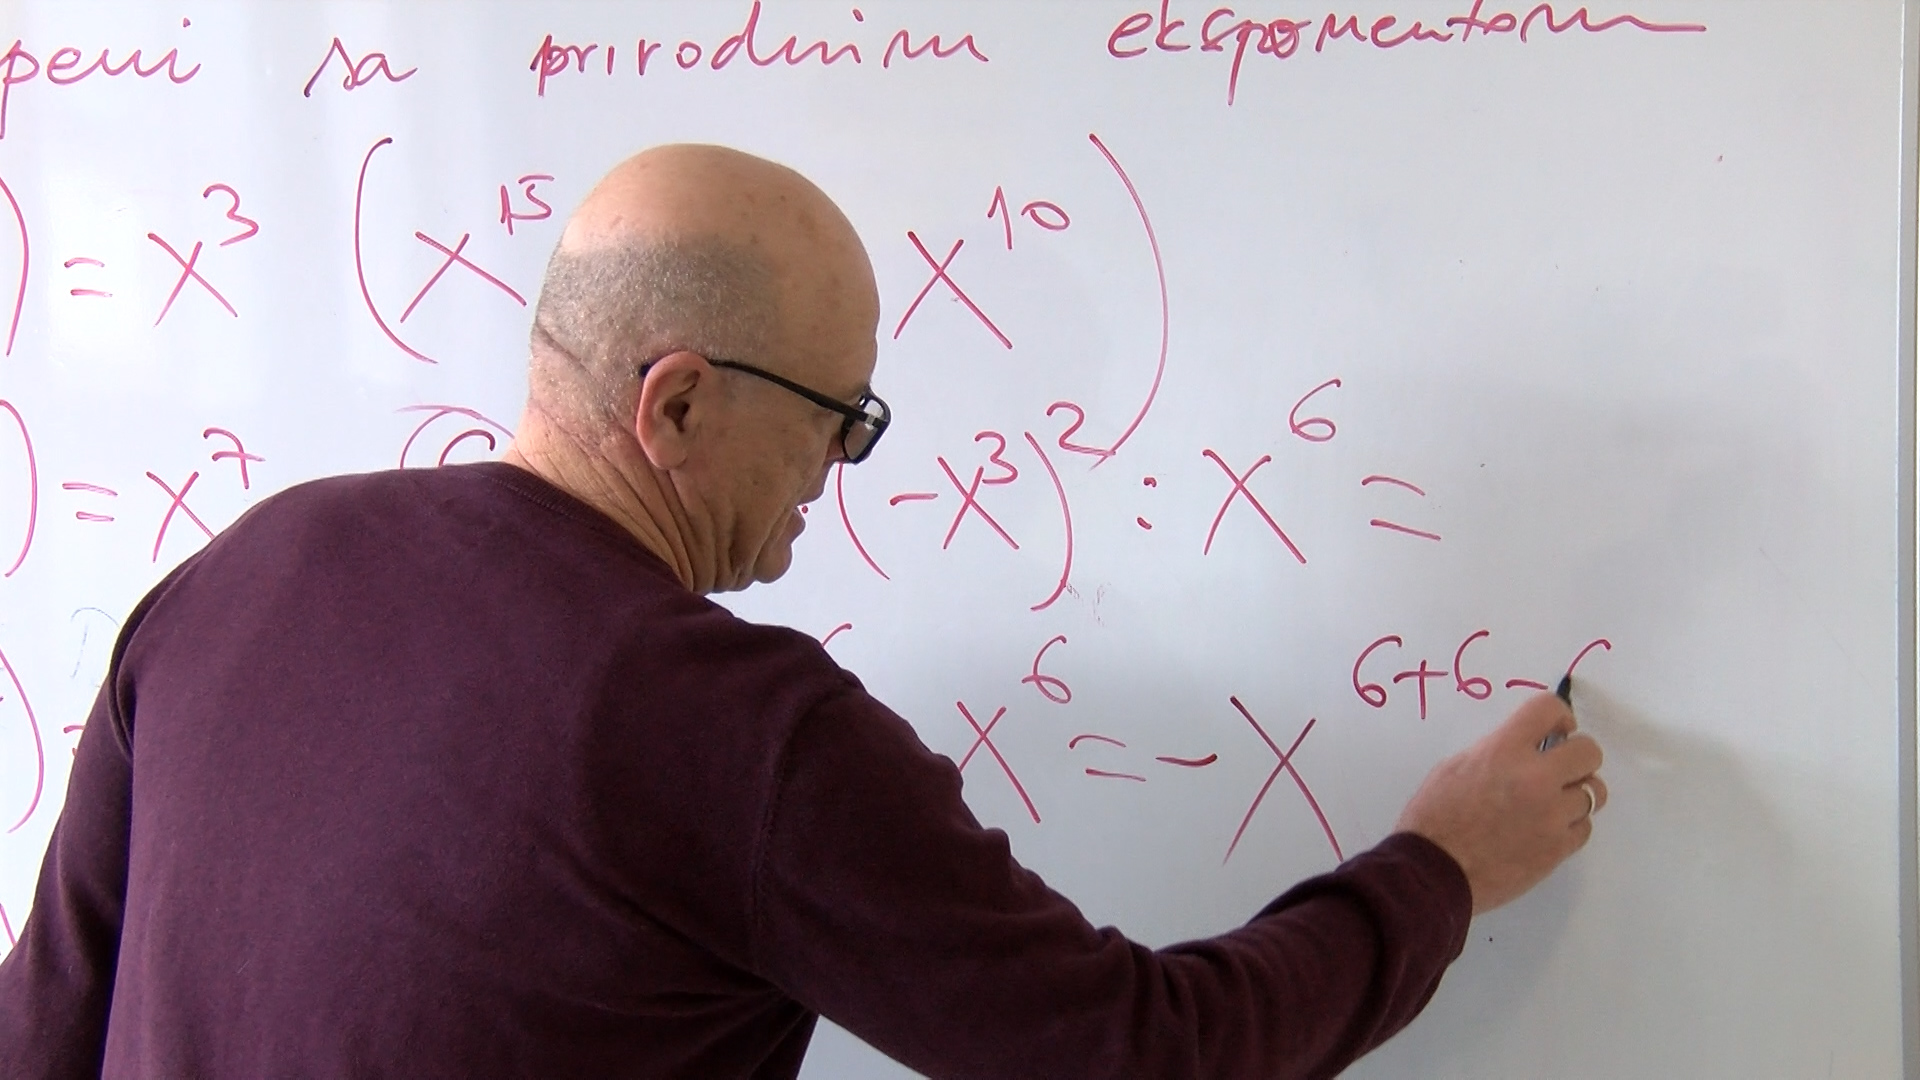 peni sa prirodnim eksponentom
) = x³ (x¹⁵ x¹⁰)
) = x⁷ · (-x³)² : x⁶ =
) x⁶ = -x⁶⁺⁶⁻⁶